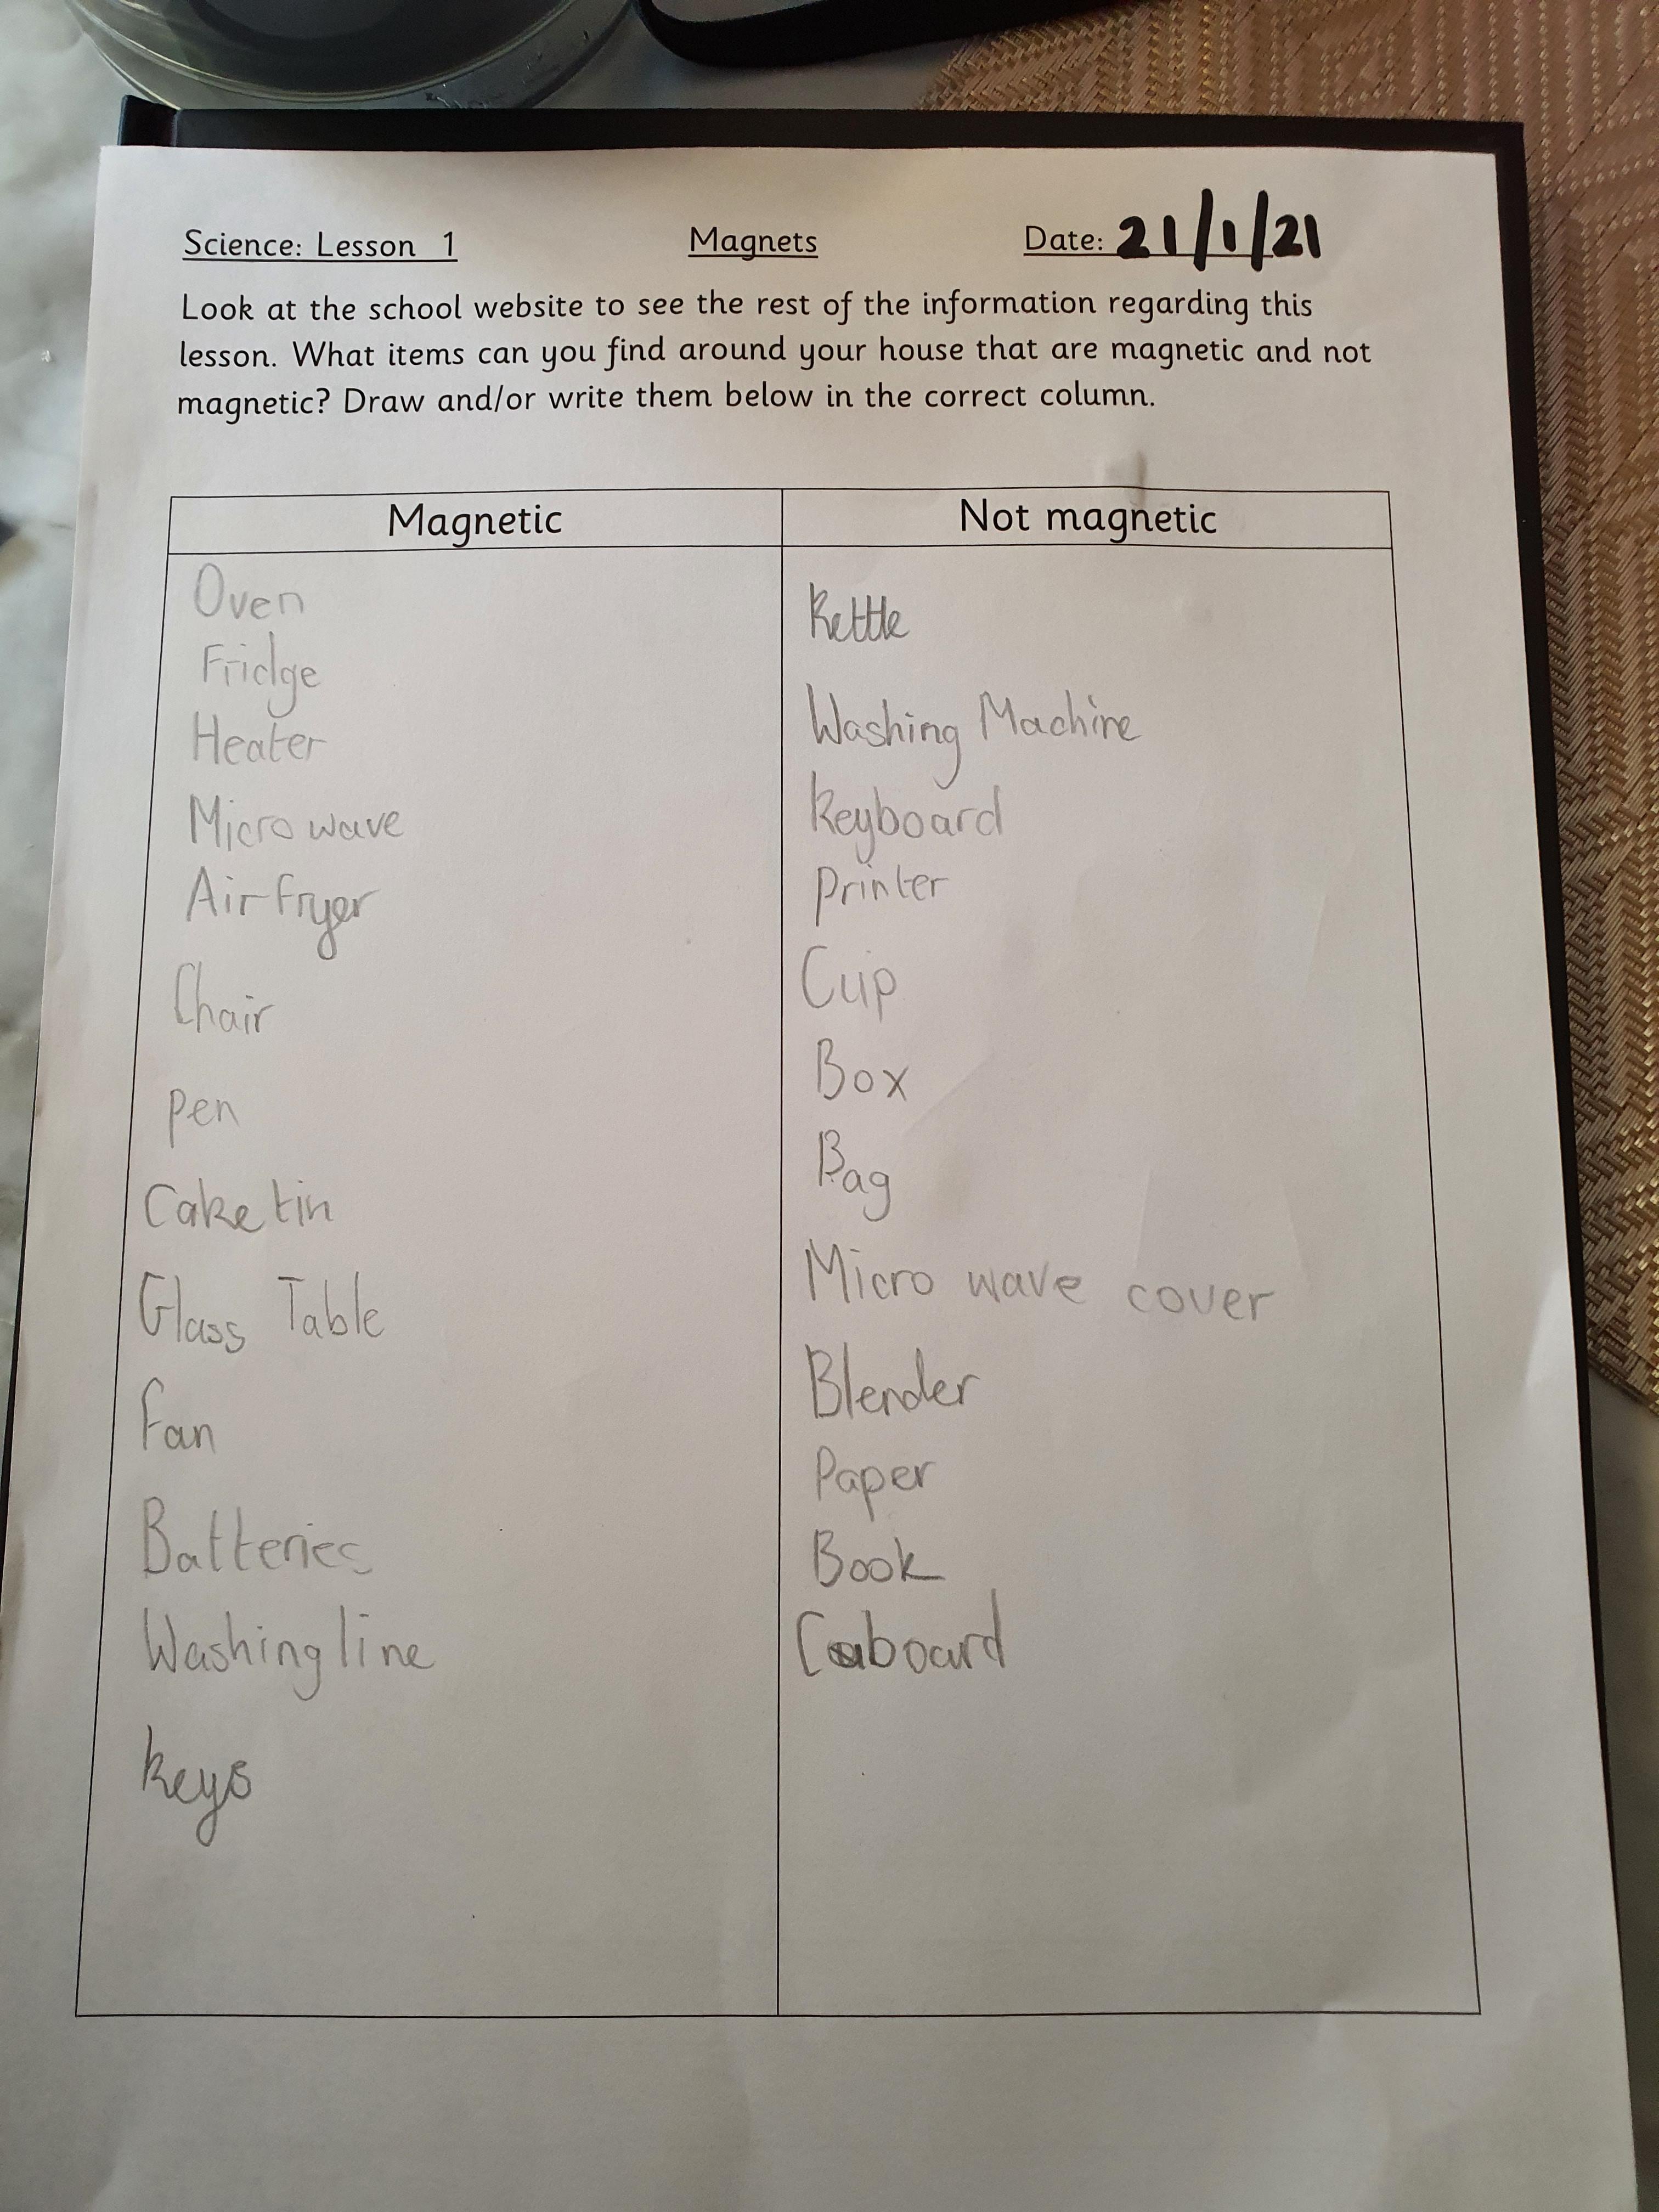 Science: Lesson 1 Magnets Date: 21/1/21
Look at the school website to see the rest of the information regarding this
lesson. What items can you find around your house that are magnetic and not
magnetic? Draw and/or write them below in the correct column.
Magnetic
Oven
Fridge
Heater
Micro wave
Air fryer
Chair
pen
Cake tin
Glass Table
fan
Batteries
Washing line
keys
Not magnetic
Kettle
Washing Machine
keyboard
printer
Cup
Box
Bag
Micro wave cover
Blender
Paper
Book
Caboard